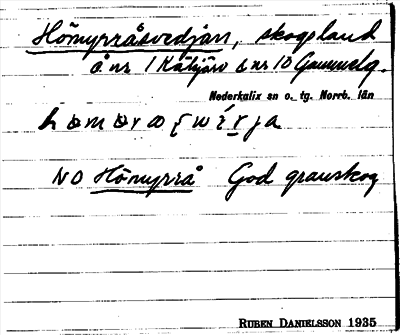 Hömyrråsvedjan, skogsland
å nr 1 Kälsjärv & nr 10 Gammelg.
Nederkalix sn o. tg. Norrb. län
NO Hömyrrå God granskog
RUBEN DANIELSSON 1935